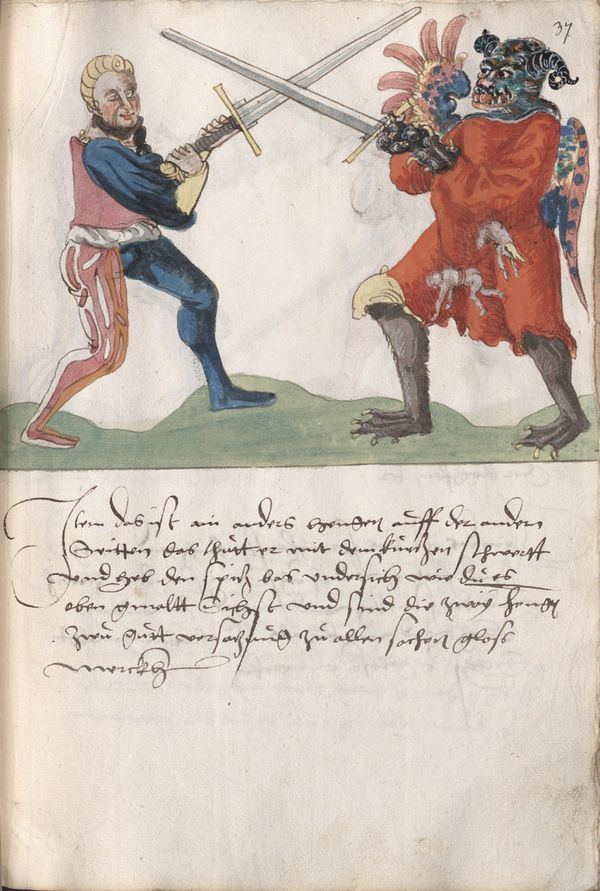 37
Item das ist ain anders hengen auff der andern
Seitten das thutt er mit dem kurtzen schwertt
und heb den spitz bas undersich wie du es
oben gmaltt Sichst und sind die zway hengen
zwu gutt versatzung zu allen sachen gloss